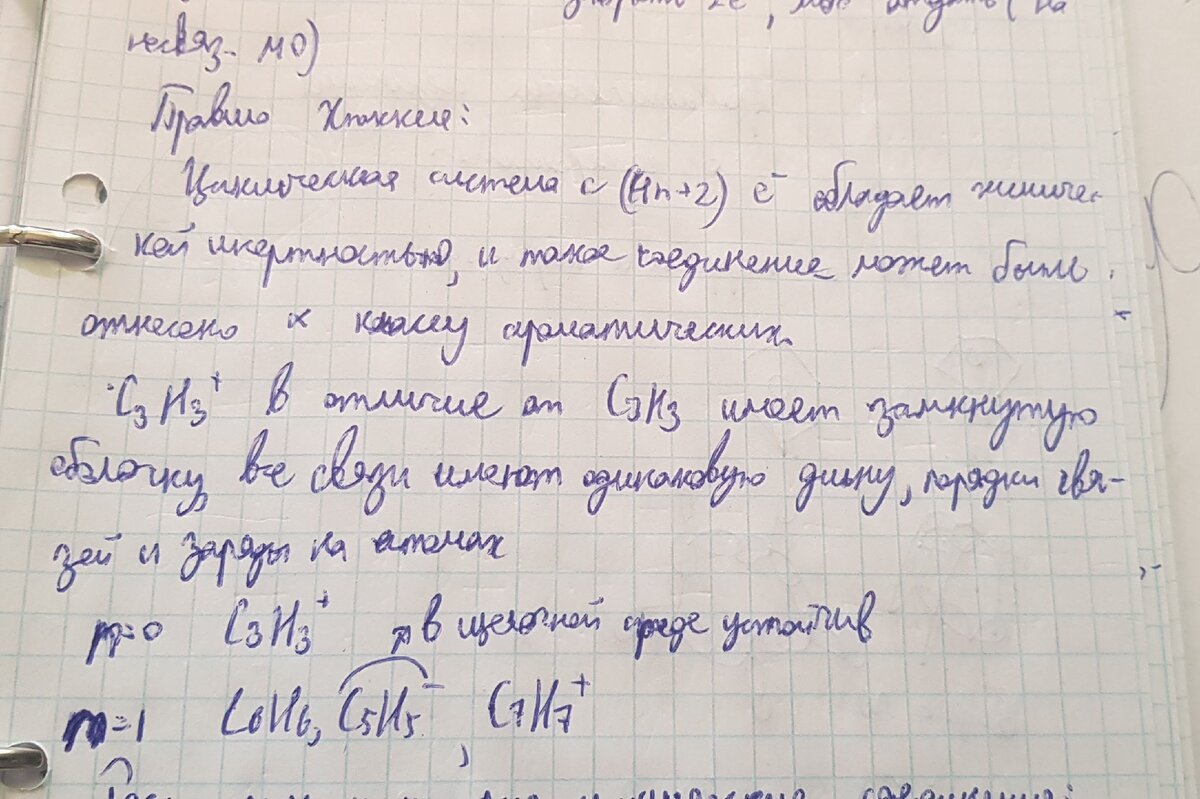 2e, на
несвяз. МО)
Правило Хюккеля:
Циклическая система с (4n+2) e⁻ обладает химичес-
кой инертностью, и такое соединение может быть
отнесено к классу ароматических.
C₃H₃⁺ в отличие от C₃H₃ имеет замкнутую
оболочку, все связи имеют одинаковую длину, порядки свя-
зей и заряды на атомах
n=0 C₃H₃⁺ в щелочной среде устойчив
n=1 C₆H₆, C₅H₅⁻, C₇H₇⁺